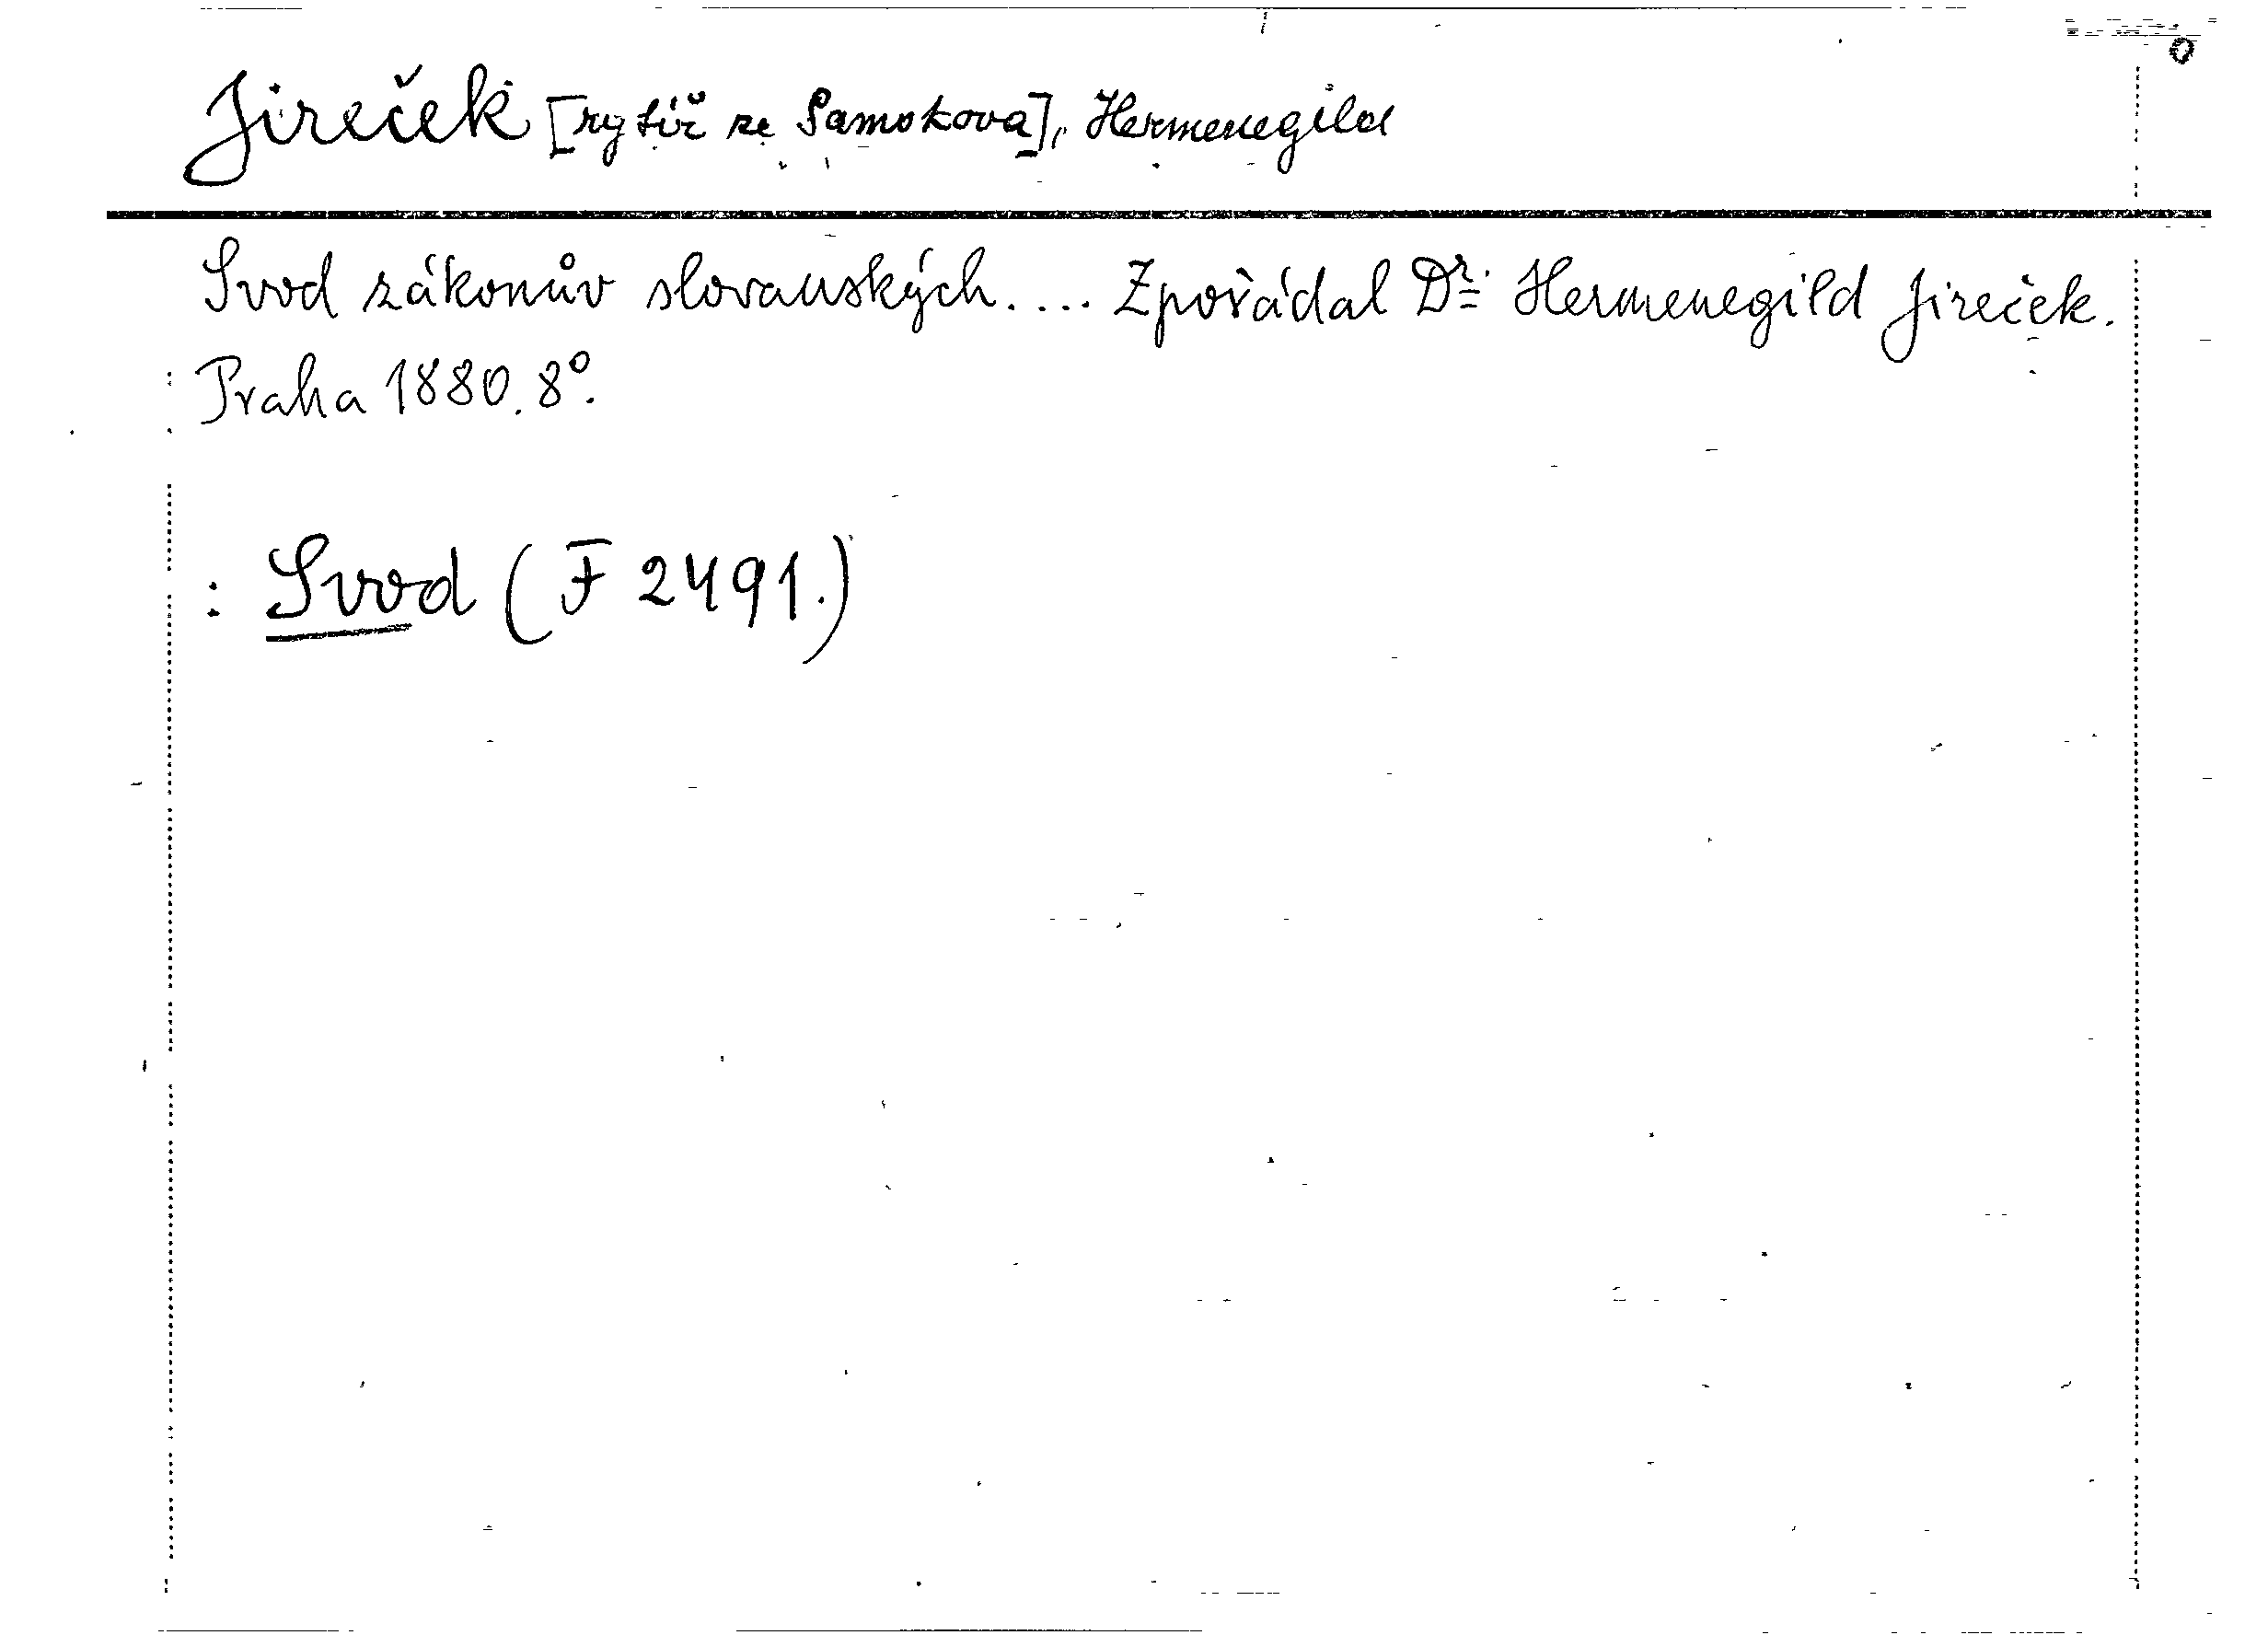 Jireček [rytíř ze Samokova], Hermenegild
Svod zákonův slovanských.... Zpořádal Dr. Hermenegild Jireček.
Praha 1880. 8°.
: Svod (F 2491.)